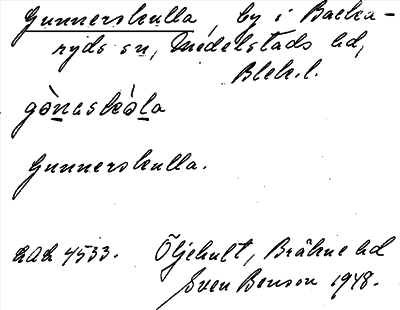 Gunnerskulla, by i Backa-
ryds sn, Medelstads hd,
Blek. l.
gònaskòla
Gunnerskulla.
LAL 4533. Öljehult, Bräkne hd
Sven Benson 1948.